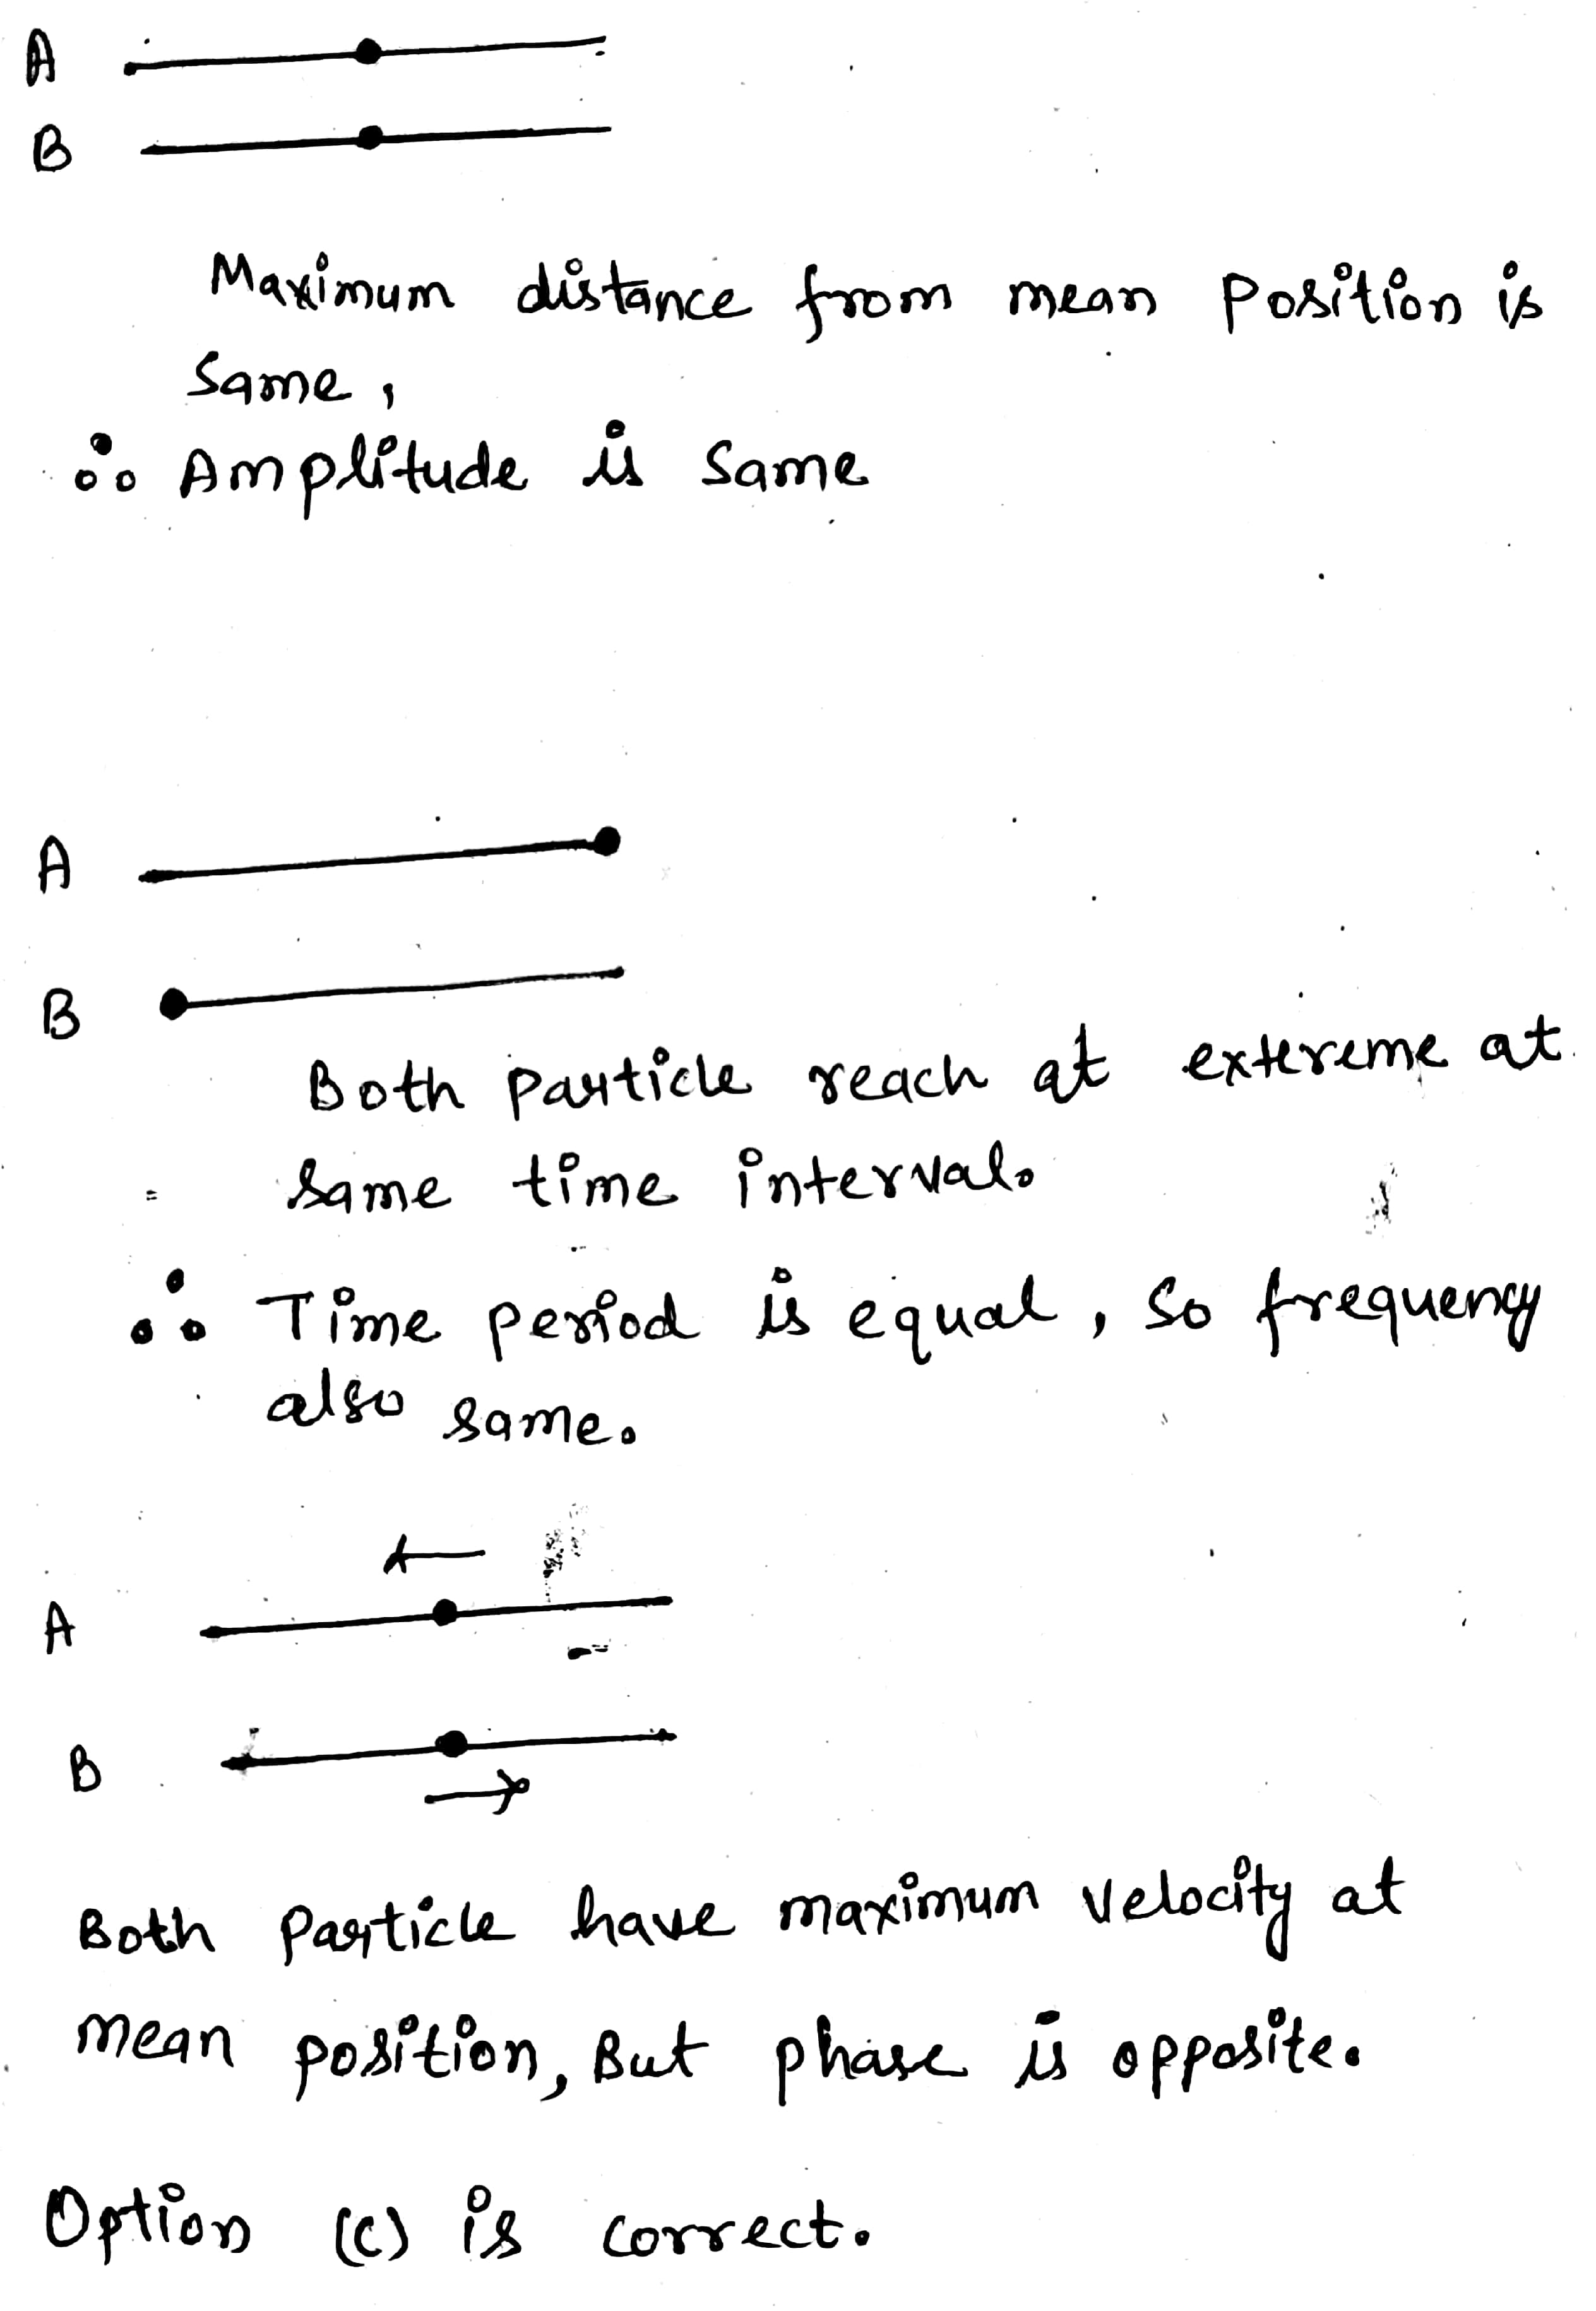 A
B
Maximum distance from mean position is
same,
∴ Amplitude is same
A
B
Both particle reach at extereme at
same time interval.
∴ Time period is equal, so frequency
also same.
A
B
Both particle have maximum velocity at
mean position, But phase is opposite.
Option (c) is correct.